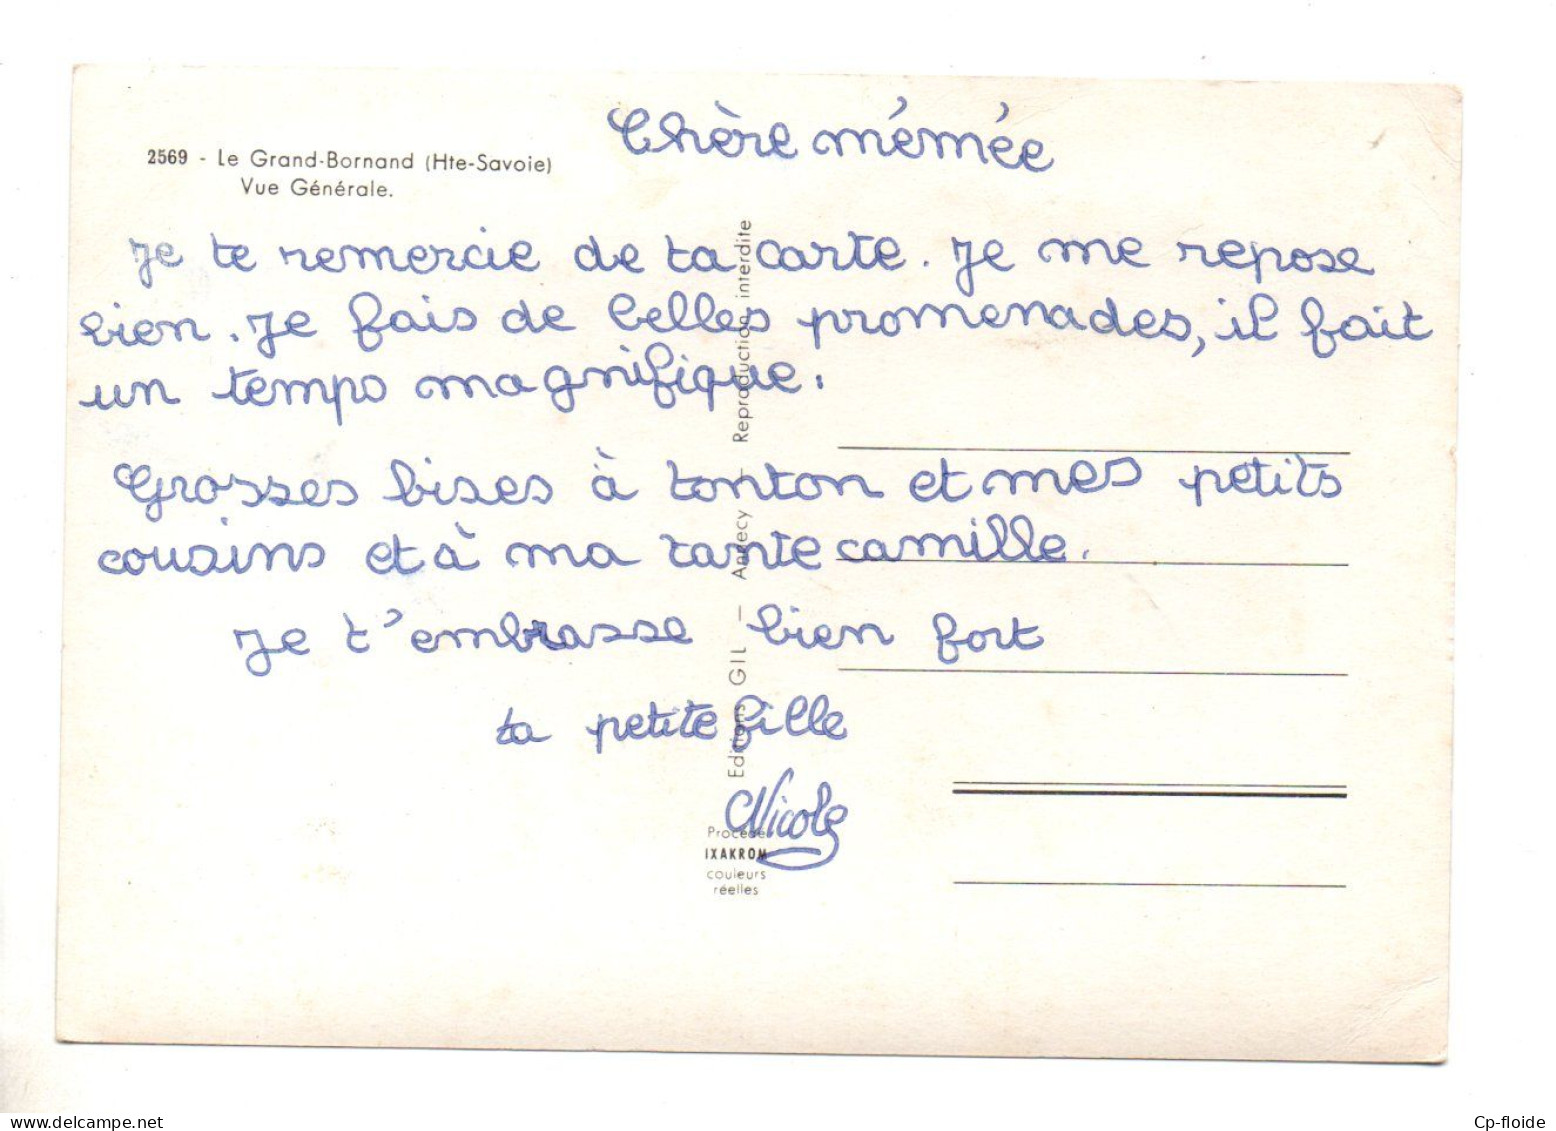 2569 - Le Grand-Bornand (Hte-Savoie)
Vue Générale.
Chère mémée
Je te remercie de ta carte. Je me repose
bien. Je fais de belles promenades, il fait
un temps magnifique.
Grosses bises à tonton et mes petits
cousins et à ma tante camille.
Je t'embrasse bien fort
ta petite fille
Nicole
Editions GIL - Annecy - Reproduction interdite
Procédé
IXAKROM
couleurs
réelles
delcampe.net
Cp-floide